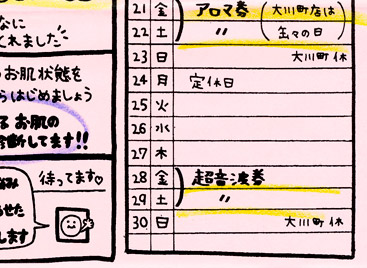 なに
くれました
お肌状態を
らはじめましょう
る お肌の
診断してます!!
待ってます♡
せた
します
21 金 アロマ券 (大川町店は
22 土 〃 缶々の日)
23 日 大川町 休
24 月 定休日
25 火
26 水
27 木
28 金 超音波券
29 土 〃
30 日 大川町 休